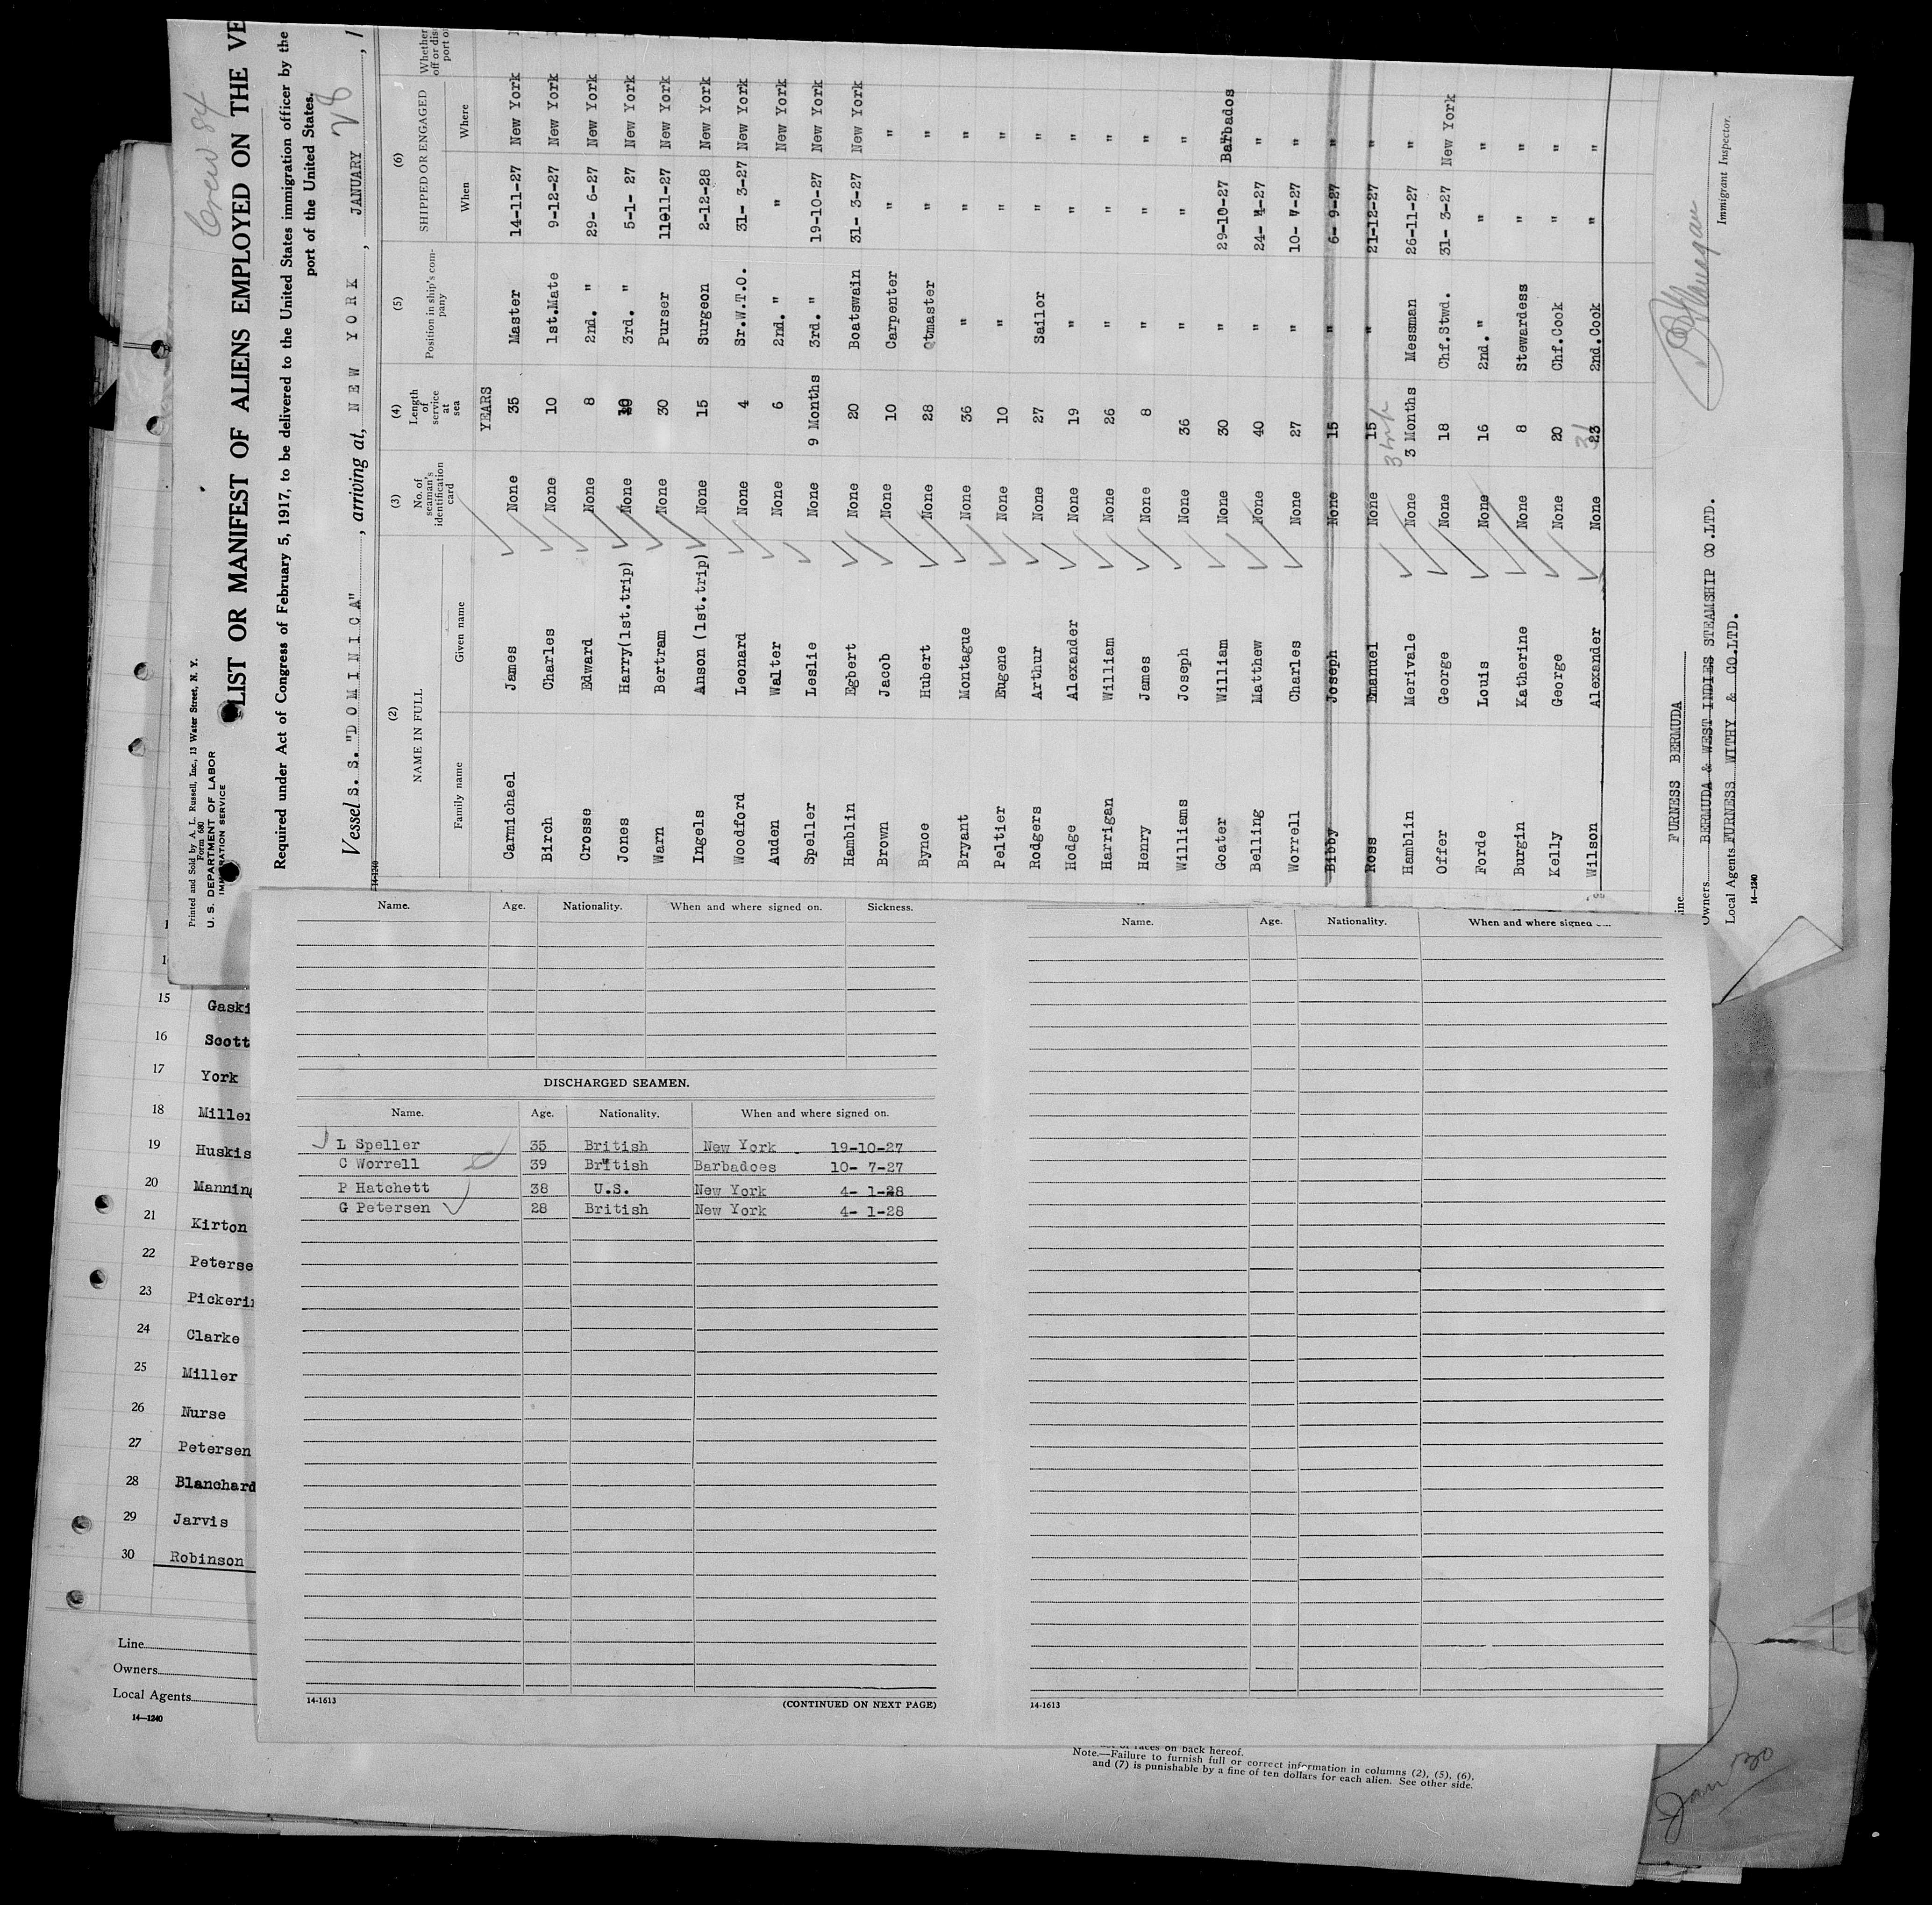 Crew 84
Printed and Sold by A. L. Russell, Inc., 13 Water Street, N. Y.
Form 680
U. S. DEPARTMENT OF LABOR
IMMIGRATION SERVICE
LIST OR MANIFEST OF ALIENS EMPLOYED ON THE VE
Required under Act of Congress of February 5, 1917, to be delivered to the United States immigration officer by the
port of the United States.
Vessel S. S. "DOMINICA", arriving at, NEW YORK, JANUARY 28, 1
14-1240
(2) (3) (4) (5) (6)
NAME IN FULL No. of seaman's identification card Length of service at sea Position in ship's company SHIPPED OR ENGAGED Whether
Family name Given name When Where
YEARS
Carmichael James None 35 Master 14-11-27 New York
Birch Charles None 10 1st.Mate 9-12-27 New York
Crosse Edward None 8 2nd. " 29- 6-27 New York
Jones Harry(1st.trip) None 3rd. " 5-1- 27 New York
Warn Bertram None 30 Purser 11011-27 New York
Ingels Anson (1st.trip) None 15 Surgeon 2-12-28 New York
Woodford Leonard None 4 Sr.W.T.O. 31- 3-27 New York
Auden Walter None 6 2nd. " " New York
Speller Leslie None 9 Months 3rd. " 19-10-27 New York
Hamblin Egbert None 20 Boatswain 31- 3-27 New York
Brown Jacob None 10 Carpenter " "
Bynoe Hubert None 28 Qtmaster " "
Bryant Montague None 36 " " "
Peltier Eugene None 10 " " "
Rodgers Arthur None 27 Sailor " "
Hodge Alexander None 19 " " "
Harrigan William None 26 " " "
Henry James None 8 " " "
Williams Joseph None 36 " " "
Goater William None 30 " 29-10-27 Barbados
Belling Matthew None 40 " 24- 4-27 "
Worrell Charles None 27 " 10- 7-27 "
Bibby Joseph None 15 " 6- 9-27 "
Ross Emanuel None 15 " 21-12-27 "
Hamblin Merivale None 3 Months Messman 26-11-27 "
Offer George None 18 Chf.Stwd. 31- 3-27 New York
Forde Louis None 16 2nd. " " "
Burgin Katherine None 8 Stewardess " "
Kelly George None 20 Chf.Cook " "
Wilson Alexander None 23 2nd.Cook " "
31
ine FURNESS BERMUDA
Owners BERMUDA & WEST INDIES STEAMSHIP CO.LTD.
Local Agents FURNESS WITHY & CO.LTD.
14-1240
Immigrant Inspector.
15 Gaski
16 Scott
17 York
18 Miller
19 Huskis
20 Manning
21 Kirton
22 Peterse
23 Pickerin
24 Clarke
25 Miller
26 Nurse
27 Petersen
28 Blanchard
29 Jarvis
30 Robinson
Line
Owners
Local Agents
14-1240
Name. Age. Nationality. When and where signed on. Sickness.
DISCHARGED SEAMEN.
Name. Age. Nationality. When and where signed on.
L Speller 35 British New York 19-10-27
C Worrell 39 British Barbadoes 10- 7-27
P Hatchett 38 U.S. New York 4- 1-28
G Petersen 28 British New York 4- 1-28
14-1613
(CONTINUED ON NEXT PAGE)
Name. Age. Nationality. When and where signed
14-1613
races on back hereof.
Note.—Failure to furnish full or correct information in columns (2), (5), (6),
and (7) is punishable by a fine of ten dollars for each alien. See other side.
Jan 30